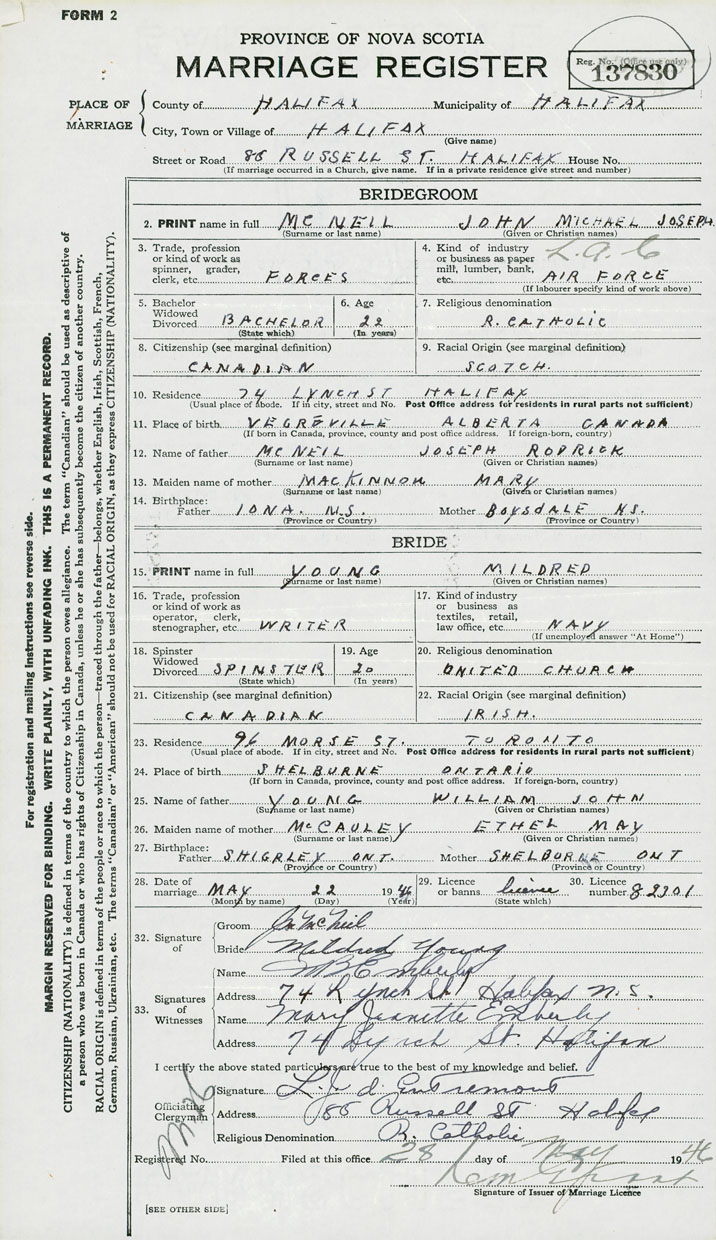 FORM 2
PROVINCE OF NOVA SCOTIA
MARRIAGE REGISTER
Reg. No. (Office use only)
137830
PLACE OF MARRIAGE
County of HALIFAX Municipality of HALIFAX
City, Town or Village of HALIFAX
(Give name)
Street or Road 88 RUSSELL ST. HALIFAX House No.
(If marriage occurred in a Church, give name. If in a private residence give street and number)
BRIDEGROOM
2. PRINT name in full MCNEIL JOHN MICHAEL JOSEPH
(Surname or last name) (Given or Christian names)
3. Trade, profession or kind of work as spinner, grader, clerk, etc. FORCES
4. Kind of industry or business as paper mill, lumber, bank, etc. L.A.C AIR FORCE
(If labourer specify kind of work above)
5. Bachelor Widowed Divorced BACHELOR (State which)
6. Age 22 (In years)
7. Religious denomination R. CATHOLIC
8. Citizenship (see marginal definition) CANADIAN
9. Racial Origin (see marginal definition) SCOTCH.
10. Residence 74 LYNCH ST HALIFAX
(Usual place of abode. If in city, street and No. Post Office address for residents in rural parts not sufficient)
11. Place of birth VEGREVILLE ALBERTA CANADA
(If born in Canada, province, county and post office address. If foreign-born, country)
12. Name of father MCNEIL JOSEPH RODRICK
(Surname or last name) (Given or Christian names)
13. Maiden name of mother MACKINNON MARY
(Surname or last name) (Given or Christian names)
14. Birthplace: Father IONA. N.S. Mother BOYSDALE NS.
(Province or Country) (Province or Country)
BRIDE
15. PRINT name in full YOUNG MILDRED
(Surname or last name) (Given or Christian names)
16. Trade, profession or kind of work as operator, clerk, stenographer, etc. WRITER
17. Kind of industry or business as textiles, retail, law office, etc. NAVY
(If unemployed answer "At Home")
18. Spinster Widowed Divorced SPINSTER (State which)
19. Age 20 (In years)
20. Religious denomination UNITED CHURCH
21. Citizenship (see marginal definition) CANADIAN
22. Racial Origin (see marginal definition) IRISH.
23. Residence 96 MORSE ST. TORONTO
(Usual place of abode. If in city, street and No. Post Office address for residents in rural parts not sufficient)
24. Place of birth SHELBURNE ONTARIO
(If born in Canada, province, county and post office address. If foreign-born, country)
25. Name of father YOUNG WILLIAM JOHN
(Surname or last name) (Given or Christian names)
26. Maiden name of mother MCCAULEY ETHEL MAY
(Surname or last name) (Given or Christian names)
27. Birthplace: Father SHIGRLEY ONT. Mother SHELBORNE ONT
(Province or Country) (Province or Country)
28. Date of marriage MAY 22 1946
(Month by name) (Day) (Year)
29. Licence or banns licence (State which)
30. Licence number 82301
32. Signature of
Groom McNeil
Bride Mildred Young
33. Signatures of Witnesses
Name Emberly
Address 74 Lynch St. Halifax N.S.
Name Mary Jeanette Emberly
Address 74 Lynch St. Halifax
I certify the above stated particulars are true to the best of my knowledge and belief.
Officiating Clergyman
Signature L. J. d'Entremont
Address 88 Russell St Halifax
Religious Denomination R. Catholic
Registered No. Filed at this office 28 day of May 1946
Signature of Issuer of Marriage Licence
[SEE OTHER SIDE]
For registration and mailing instructions see reverse side.
MARGIN RESERVED FOR BINDING. WRITE PLAINLY, WITH UNFADING INK. THIS IS A PERMANENT RECORD.
CITIZENSHIP (NATIONALITY) is defined in terms of the country to which the person owes allegiance. The term "Canadian" should be used as descriptive of
a person who was born in Canada or who has rights of Citizenship in Canada, unless he or she has subsequently become the citizen of another country.
RACIAL ORIGIN is defined in terms of the people or race to which the person—traced through the father—belongs, whether English, Irish, Scottish, French,
German, Russian, Ukrainian, etc. The terms "Canadian" or "American" should not be used for RACIAL ORIGIN, as they express CITIZENSHIP (NATIONALITY).